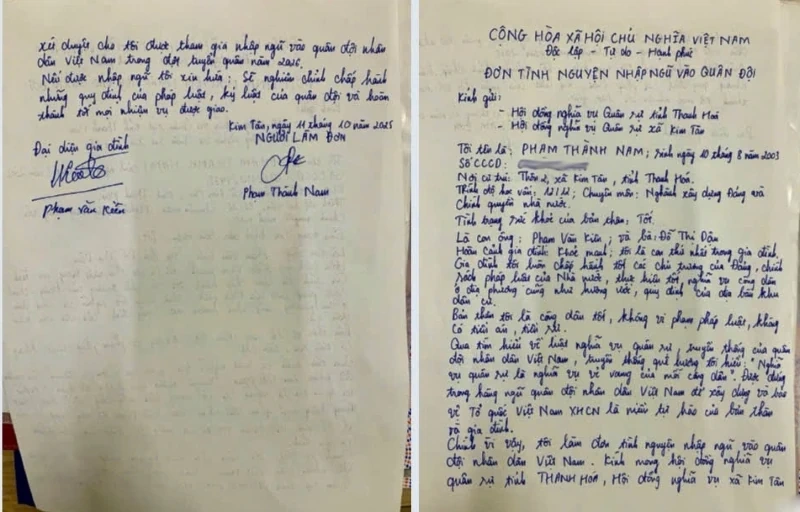 CÔNG HÒA XÃ HỘI CHỦ NGHĨA VIỆT NAM
Độc lập - Tự do - Hạnh phúc
ĐƠN TÌNH NGUYỆN NHẬP NGŨ VÀO QUÂN ĐỘI
Kính gửi:
- Hội đồng nghĩa vụ Quân sự tỉnh Thanh Hoá
- Hội đồng nghĩa vụ Quân sự xã Kim Tân
Tôi tên là: PHẠM THÀNH NAM; sinh ngày 10 tháng 8 năm 2003
Số CCCD:
Nơi cư trú: Thôn 2, xã Kim Tân, tỉnh Thanh Hoá.
Trình độ học vấn: 12/12; Chuyên môn: Nghành xây dựng Đảng và
Chính quyền nhà nước.
Tình trạng sức khoẻ của bản thân: Tốt.
Là con ông: Phạm Văn Kiên; và bà: Đỗ Thị Dậu
Hoàn cảnh gia đình: Khoẻ mạnh; tôi là con thứ nhất trong gia đình.
Gia đình tôi luôn chấp hành tốt các chủ trương của Đảng, chính
sách pháp luật của Nhà nước, thực hiện tốt nghĩa vụ công dân
ở địa phương cũng như hương ước, quy định của địa bàn khu
dân cư.
Bản thân tôi là công dân tốt, không vi phạm pháp luật, không
có tiền án, tiền sự.
Qua tìm hiểu về luật nghĩa vụ quân sự, truyền thống của quân
đội nhân dân Việt Nam, truyền thống quê hương tôi hiểu: "Nghĩa
vụ quân sự là nghĩa vụ vẻ vang của mỗi công dân". Được đứng
trong hàng ngũ quân đội nhân dân Việt Nam để xây dựng và bảo
vệ Tổ quốc Việt Nam XHCN là niềm tự hào của bản thân
và gia đình.
Chính vì vậy, tôi làm đơn tình nguyện nhập ngũ vào quân
đội nhân dân Việt Nam. Kính mong hội đồng nghĩa vụ
quân sự tỉnh THANH HOÁ, Hội đồng nghĩa vụ xã Kim Tân
xét duyệt cho tôi được tham gia nhập ngũ vào quân đội nhân
dân Việt Nam trong đợt tuyển quân năm 2026.
Nếu được nhập ngũ tôi xin hứa: Sẽ nghiêm chỉnh chấp hành
những quy định của pháp luật, kỷ luật của quân đội và hoàn
thành tốt mọi nhiệm vụ được giao.
Kim Tân, ngày 11 tháng 10 năm 2025
Đại diện gia đình
NGƯỜI LÀM ĐƠN
Phạm Văn Kiên
Phạm Thành Nam